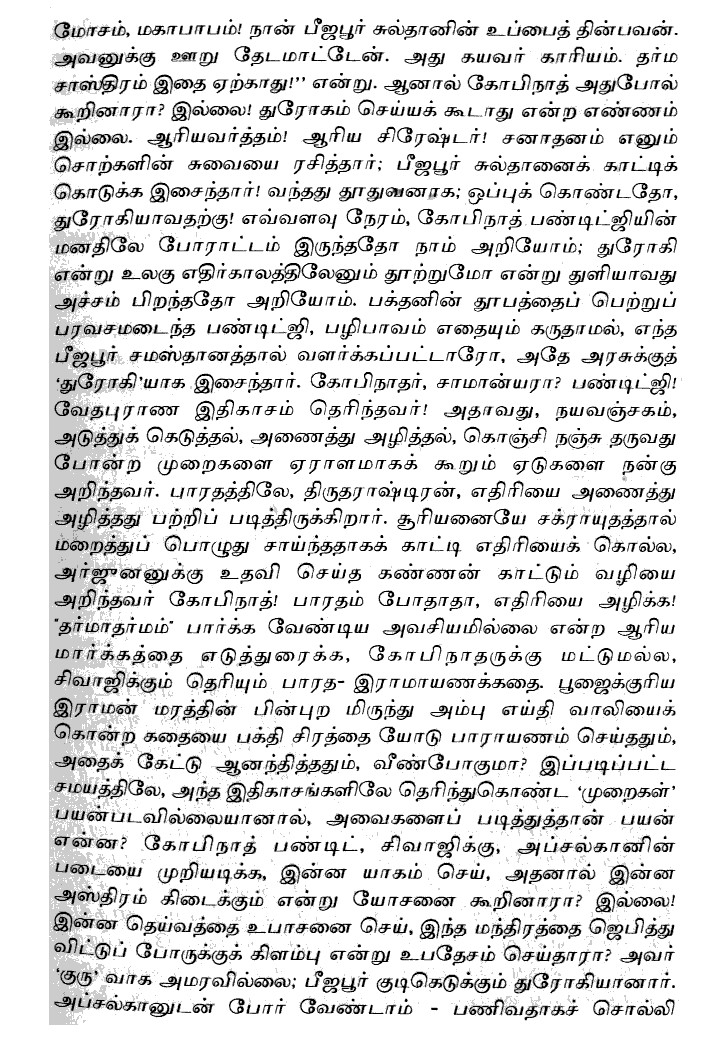 மோசம், மகாபாபம்! நான் பீஜபூர் சுல்தானின் உப்பைத் தின்பவன்.
அவனுக்கு ஊறு தேடமாட்டேன். அது கயவர் காரியம். தர்ம
சாஸ்திரம் இதை ஏற்காது!'' என்று. ஆனால் கோபிநாத் அதுபோல்
கூறினாரா? இல்லை! துரோகம் செய்யக் கூடாது என்ற எண்ணம்
இல்லை. ஆரியவர்த்தம்! ஆரிய சிரேஷ்டர்! சனாதனம் எனும்
சொற்களின் சுவையை ரசித்தார்; பீஜபூர் சுல்தானைக் காட்டிக்
கொடுக்க இசைந்தார்! வந்தது தூதுவனாக; ஒப்புக் கொண்டதோ,
துரோகியாவதற்கு! எவ்வளவு நேரம், கோபிநாத் பண்டிட்ஜியின்
மனதிலே போராட்டம் இருந்ததோ நாம் அறியோம்; துரோகி
என்று உலகு எதிர்காலத்திலேனும் தூற்றுமோ என்று துளியாவது
அச்சம் பிறந்ததோ அறியோம். பக்தனின் தூபத்தைப் பெற்றுப்
பரவசமடைந்த பண்டிட்ஜி, பழிபாவம் எதையும் கருதாமல், எந்த
பீஜபூர் சமஸ்தானத்தால் வளர்க்கப்பட்டாரோ, அதே அரசுக்குத்
'துரோகி'யாக இசைந்தார். கோபிநாதர், சாமான்யரா? பண்டிட்ஜி!
வேதபுராண இதிகாசம் தெரிந்தவர்! அதாவது, நயவஞ்சகம்,
அடுத்துக் கெடுத்தல், அணைத்து அழித்தல், கொஞ்சி நஞ்சு தருவது
போன்ற முறைகளை ஏராளமாகக் கூறும் ஏடுகளை நன்கு
அறிந்தவர். பாரதத்திலே, திருதராஷ்டிரன், எதிரியை அணைத்து
அழித்தது பற்றிப் படித்திருக்கிறார். சூரியனையே சக்ராயுதத்தால்
மறைத்துப் பொழுது சாய்ந்ததாகக் காட்டி எதிரியைக் கொல்ல,
அர்ஜுனனுக்கு உதவி செய்த கண்ணன் காட்டும் வழியை
அறிந்தவர் கோபிநாத்! பாரதம் போதாதா, எதிரியை அழிக்க!
"தர்மாதர்மம்" பார்க்க வேண்டிய அவசியமில்லை என்ற ஆரிய
மார்க்கத்தை எடுத்துரைக்க, கோபிநாதருக்கு மட்டுமல்ல,
சிவாஜிக்கும் தெரியும் பாரத- இராமாயணக்கதை. பூஜைக்குரிய
இராமன் மரத்தின் பின்புற மிருந்து அம்பு எய்தி வாலியைக்
கொன்ற கதையை பக்தி சிரத்தை யோடு பாராயணம் செய்ததும்,
அதைக் கேட்டு ஆனந்தித்ததும், வீண்போகுமா? இப்படிப்பட்ட
சமயத்திலே, அந்த இதிகாசங்களிலே தெரிந்துகொண்ட 'முறைகள்'
பயன்படவில்லையானால், அவைகளைப் படித்துத்தான் பயன்
என்ன? கோபிநாத் பண்டிட், சிவாஜிக்கு, அப்சல்கானின்
படையை முறியடிக்க, இன்ன யாகம் செய், அதனால் இன்ன
அஸ்திரம் கிடைக்கும் என்று யோசனை கூறினாரா? இல்லை!
இன்ன தெய்வத்தை உபாசனை செய், இந்த மந்திரத்தை ஜெபித்து
விட்டுப் போருக்குக் கிளம்பு என்று உபதேசம் செய்தாரா? அவர்
'குரு' வாக அமரவில்லை; பீஜபூர் குடிகெடுக்கும் துரோகியானார்.
அப்சல்கானுடன் போர் வேண்டாம் - பணிவதாகச் சொல்லி